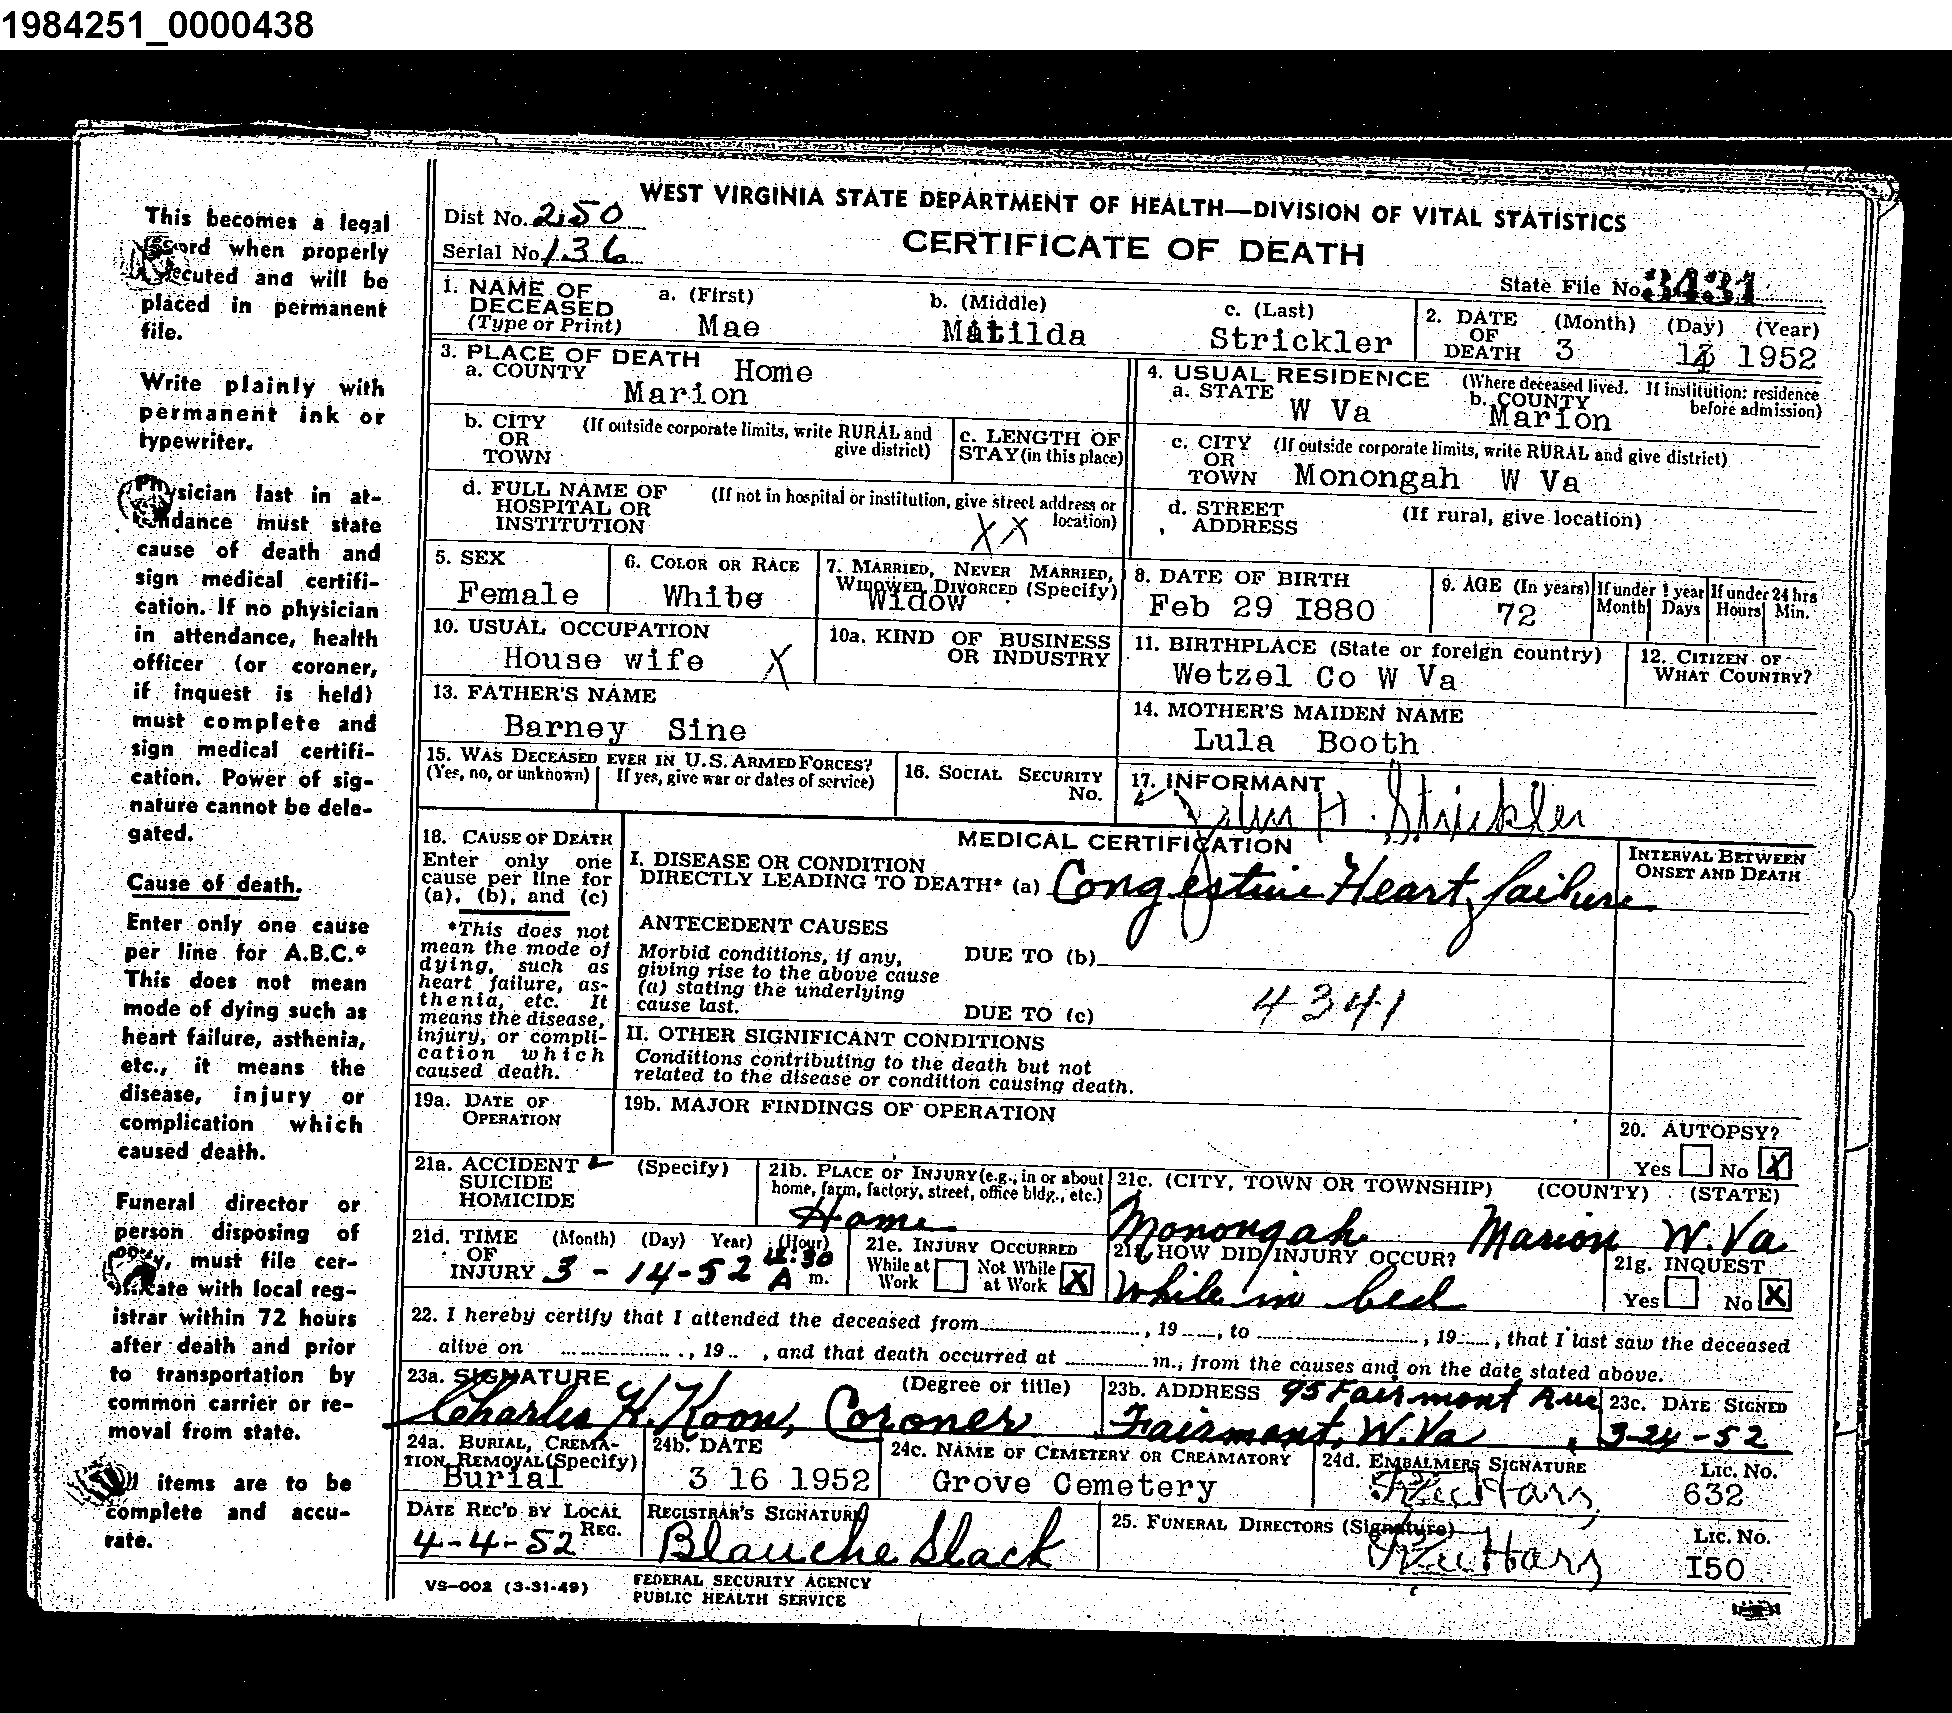 1984251_0000438
WEST VIRGINIA STATE DEPARTMENT OF HEALTH—DIVISION OF VITAL STATISTICS
CERTIFICATE OF DEATH
Dist No. 250
Serial No. 136
State File No. 3431
This becomes a legal
record when properly
executed and will be
placed in permanent
file.
Write plainly with
permanent ink or
typewriter.
Physician last in at-
tendance must state
cause of death and
sign medical certifi-
cation. If no physician
in attendance, health
officer (or coroner,
if inquest is held)
must complete and
sign medical certifi-
cation. Power of sig-
nature cannot be dele-
gated.
Cause of death.
Enter only one cause
per line for A.B.C.*
This does not mean
mode of dying such as
heart failure, asthenia,
etc., it means the
disease, injury or
complication which
caused death.
Funeral director or
person disposing of
body, must file cer-
tificate with local reg-
istrar within 72 hours
after death and prior
to transportation by
common carrier or re-
moval from state.
All items are to be
complete and accu-
rate.
1. NAME OF DECEASED (Type or Print)
a. (First) Mae
b. (Middle) Matilda
c. (Last) Strickler
2. DATE OF DEATH (Month) (Day) (Year)
3 1952
3. PLACE OF DEATH Home
a. COUNTY Marion
4. USUAL RESIDENCE (Where deceased lived. If institution: residence before admission)
a. STATE W Va
b. COUNTY Marion
b. CITY OR TOWN (If outside corporate limits, write RURAL and give district)
c. LENGTH OF STAY (in this place)
c. CITY OR TOWN (If outside corporate limits, write RURAL and give district)
Monongah W Va
d. FULL NAME OF HOSPITAL OR INSTITUTION (If not in hospital or institution, give street address or location)
XX
d. STREET ADDRESS (If rural, give location)
5. SEX
Female
6. COLOR OR RACE
White
7. MARRIED, NEVER MARRIED, WIDOWED, DIVORCED (Specify)
Widow
8. DATE OF BIRTH
Feb 29 I880
9. AGE (In years) If under 1 year Month Days If under 24 hrs Hours Min.
72
10. USUAL OCCUPATION
House wife X
10a. KIND OF BUSINESS OR INDUSTRY
11. BIRTHPLACE (State or foreign country)
Wetzel Co W Va
12. CITIZEN OF WHAT COUNTRY?
13. FATHER'S NAME
Barney Sine
14. MOTHER'S MAIDEN NAME
Lula Booth
15. WAS DECEASED EVER IN U.S. ARMED FORCES?
(Yes, no, or unknown) If yes, give war or dates of service)
16. SOCIAL SECURITY No.
17. INFORMANT
H. Strickler
18. CAUSE OF DEATH
Enter only one
cause per line for
(a), (b), and (c)
*This does not
mean the mode of
dying, such as
heart failure, as-
thenia, etc. It
means the disease,
injury, or compli-
cation which
caused death.
MEDICAL CERTIFICATION
INTERVAL BETWEEN ONSET AND DEATH
I. DISEASE OR CONDITION
DIRECTLY LEADING TO DEATH* (a) Congestive Heart failure
ANTECEDENT CAUSES
Morbid conditions, if any,
giving rise to the above cause
(a) stating the underlying
cause last.
DUE TO (b)
DUE TO (c)
4341
II. OTHER SIGNIFICANT CONDITIONS
Conditions contributing to the death but not
related to the disease or condition causing death.
19a. DATE OF OPERATION
19b. MAJOR FINDINGS OF OPERATION
20. AUTOPSY?
Yes No X
21a. ACCIDENT SUICIDE HOMICIDE (Specify)
21b. PLACE OF INJURY (e.g., in or about home, farm, factory, street, office bldg., etc.)
Home
21c. (CITY, TOWN OR TOWNSHIP) (COUNTY) (STATE)
Monongah Marion W. Va
21d. TIME OF INJURY (Month) (Day) Year) (Hour)
3-14-52 12:30 A m.
21e. INJURY OCCURRED
While at Work Not While at Work X
21f. HOW DID INJURY OCCUR?
While in bed
21g. INQUEST
Yes No X
22. I hereby certify that I attended the deceased from , 19 , to , 19 , that I last saw the deceased
alive on , 19 , and that death occurred at m., from the causes and on the date stated above.
23a. SIGNATURE (Degree or title)
Charles H. Koon, Coroner
23b. ADDRESS 95 Fairmont Ave
Fairmont, W. Va
23c. DATE SIGNED
3-24-52
24a. BURIAL, CREMA-
TION, REMOVAL (Specify)
Burial
24b. DATE
3 16 1952
24c. NAME OF CEMETERY OR CREAMATORY
Grove Cemetery
24d. EMBALMERS SIGNATURE
LIC. NO.
632
DATE REC'D BY LOCAL REG.
4-4-52
REGISTRAR'S SIGNATURE
Blanche Slack
25. FUNERAL DIRECTORS (Signature)
LIC. NO.
I50
VS-002 (3-31-49)
FEDERAL SECURITY AGENCY
PUBLIC HEALTH SERVICE